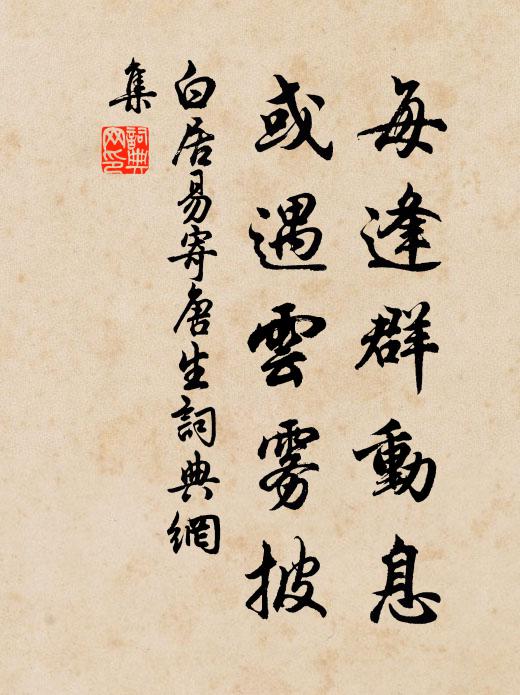 每逢群動息
或遇雲雾披
白居易寄唐生詞典網
集
詞典
网印